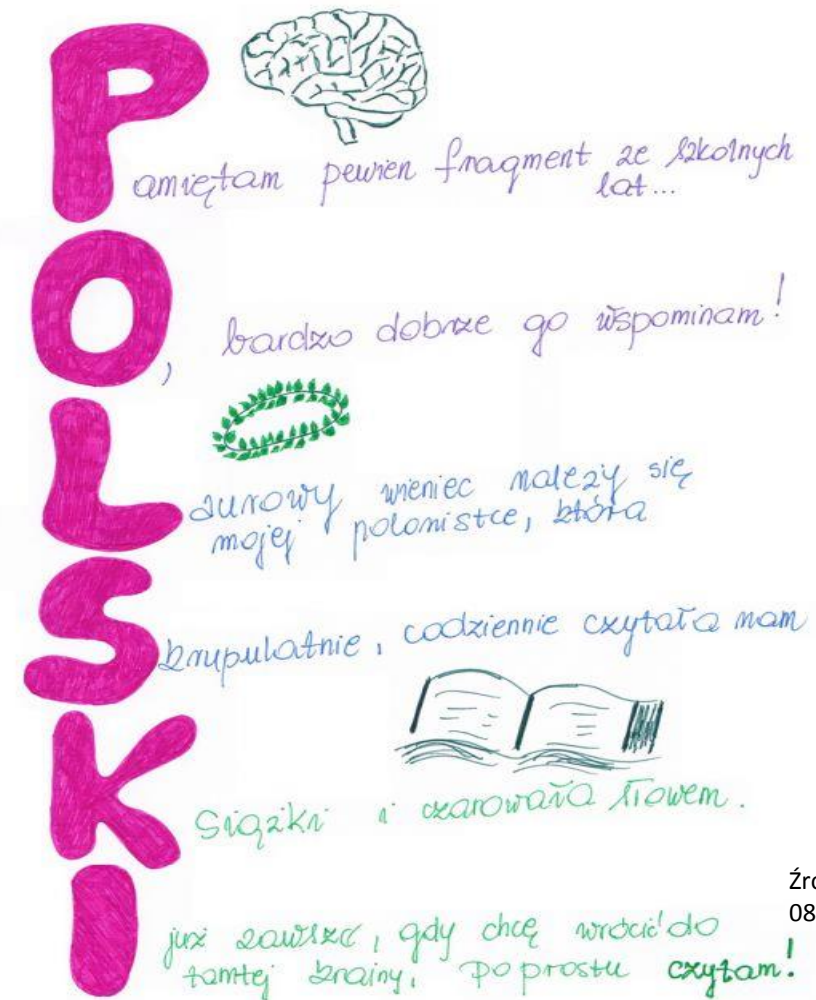 Pamiętam pewien fragment ze szkolnych
lat...
O, bardzo dobrze go wspominam!
Laurowy wieniec należy się
mojej polonistce, która
Skrupulatnie, codziennie czytała nam
Książki i czarowała słowem.
I już zawsze, gdy chcę wrócić do
tamtej krainy, po prostu czytam!
Źró
08